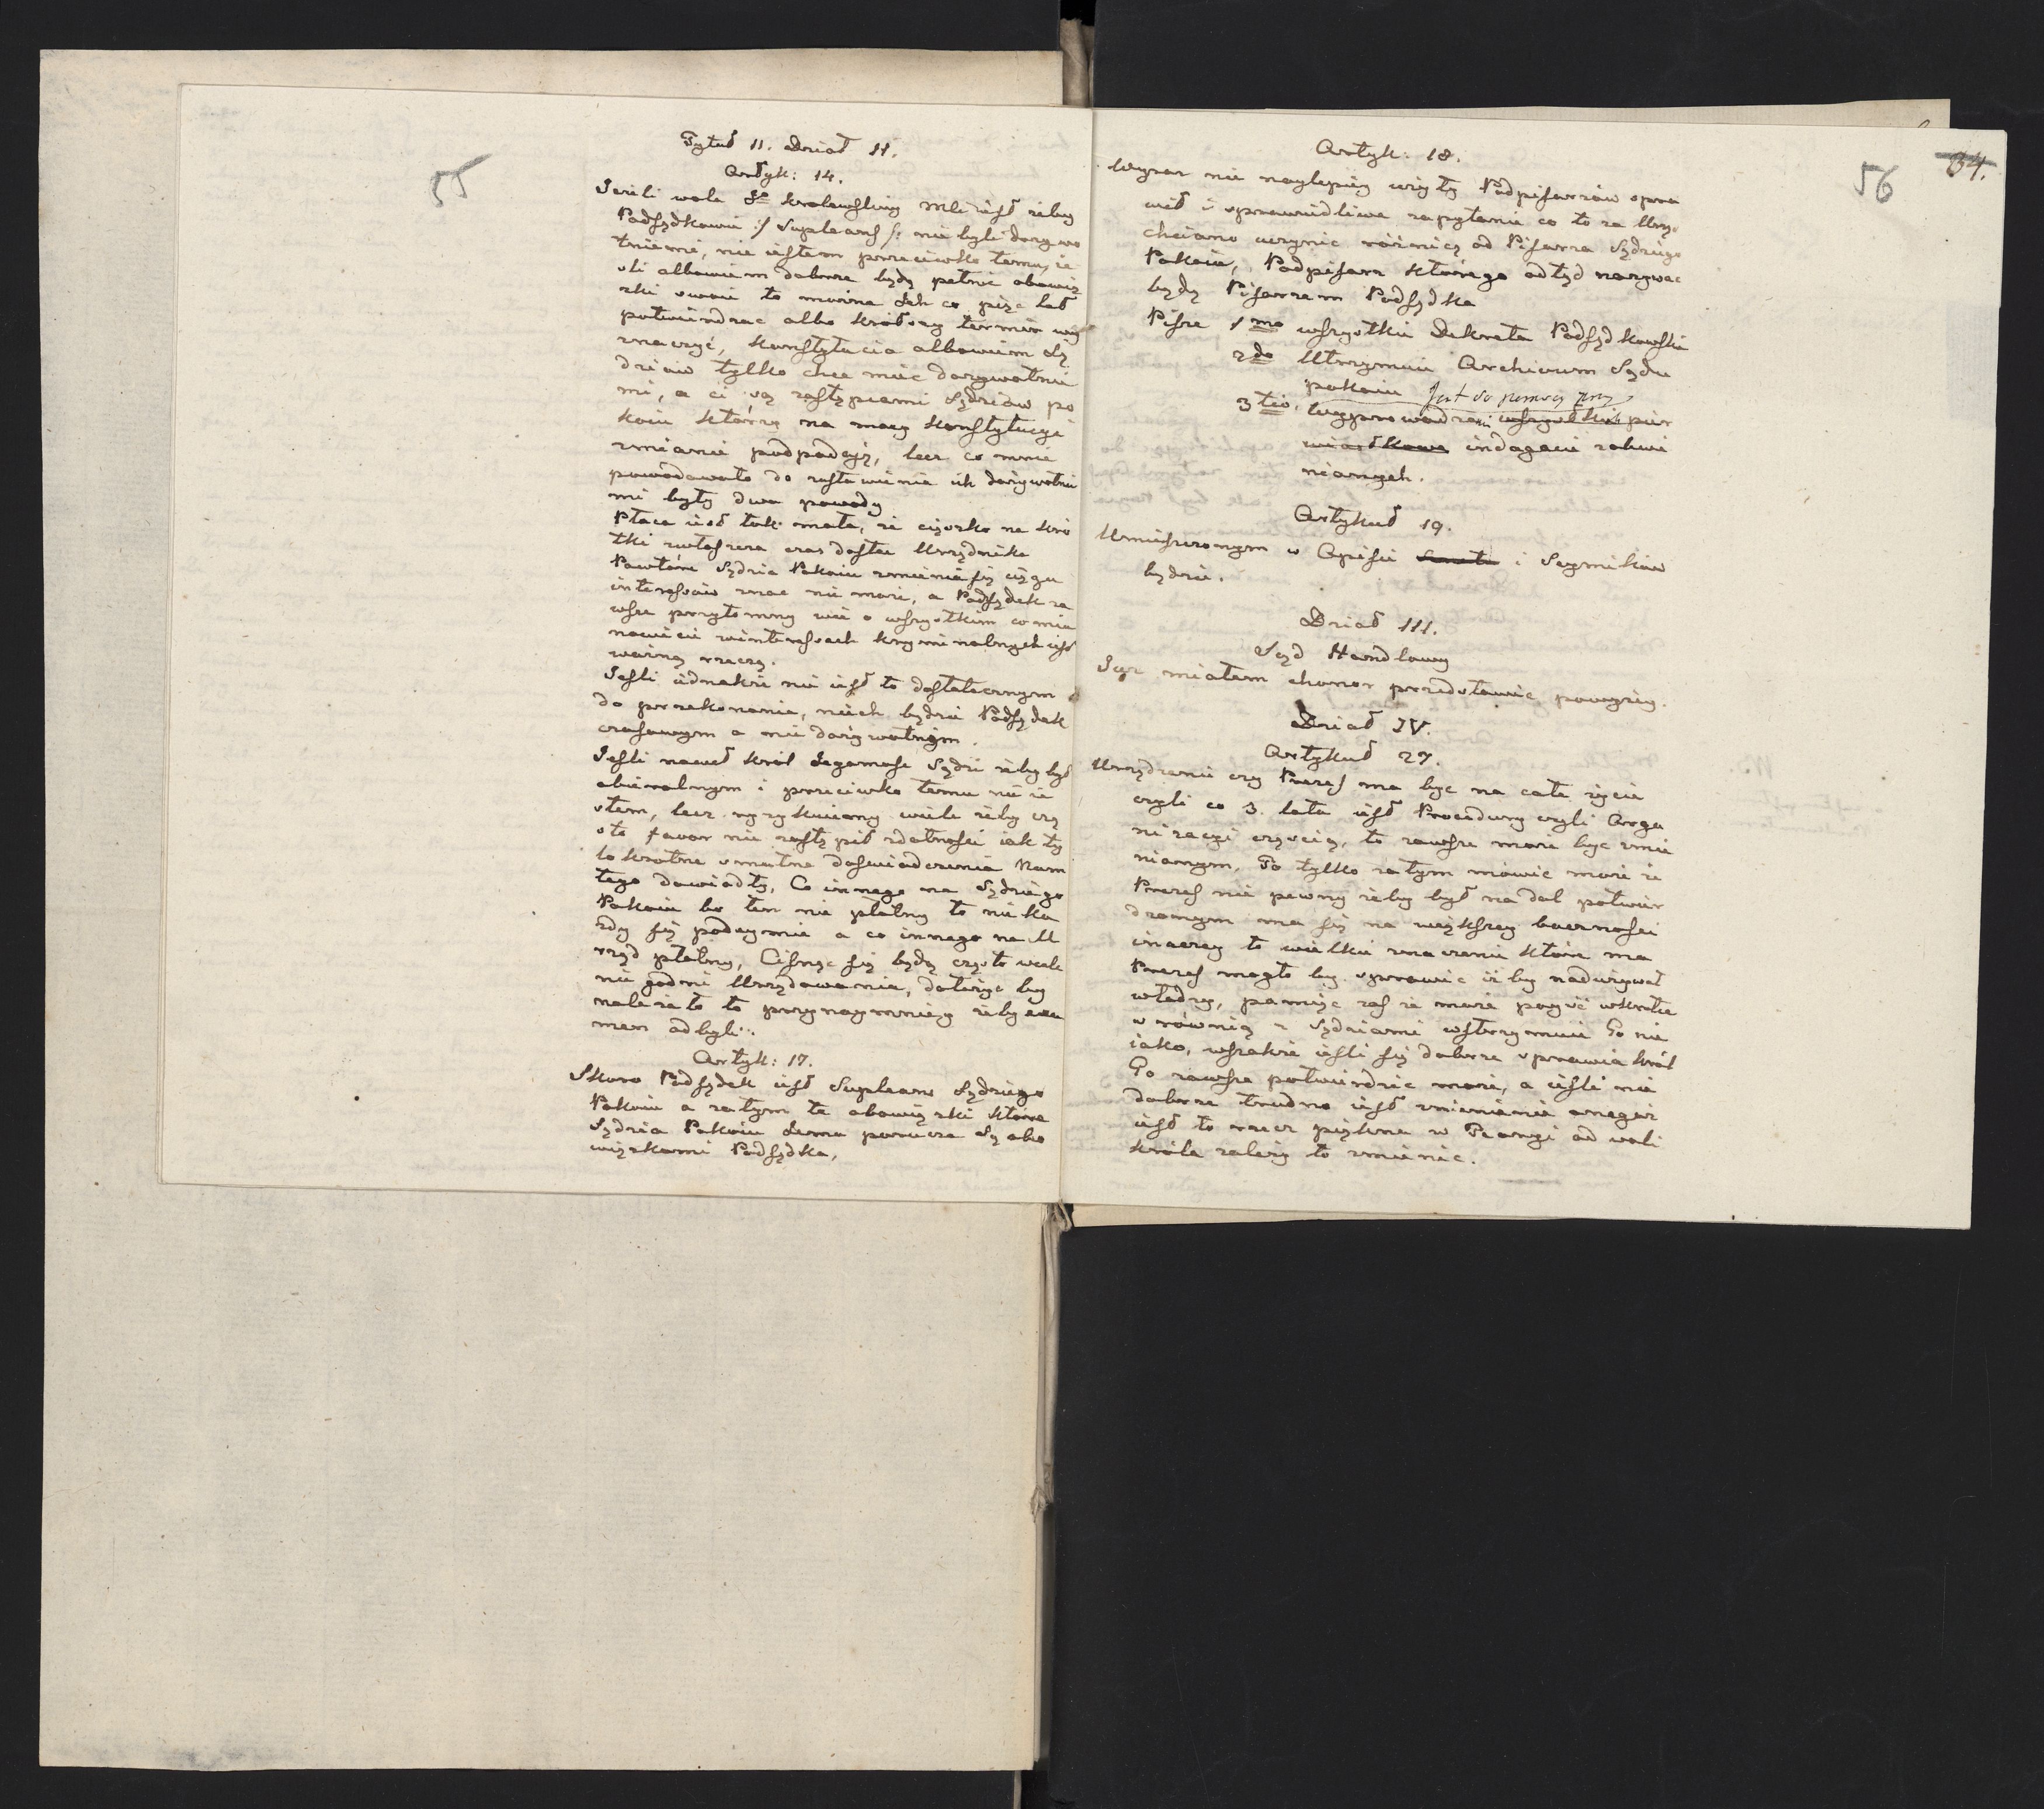 55
Tytuł II. Dział II.
Artyk: 14.
Jeżeli wola Jo Krolewskiey Mci iest żeby
Podsędkowie :/ Supleans /: nie byli dożywo
tniemi, nie iestem przeciwko temu, ie
sli albowiem dobrze będą pełnić obowią
zki swoie to można Ich co pięc lat
potwierdzac albo krótszy termin wy
znaczyć, Konstytucia albowiem Sę
dziów tylko chce miec dożywotnie
mi, a ci są zastępcami Sędziów po
koiu którzy na mocy Konstytucyi
zmianie podpadaią, lecz co mnie
powodowało do zostawienia ich dożywotnie
mi były dwa powody
Płaca iest tak mała, że ciężko na kró
tki zwłaszcza czas dostac Urzędnika
Powtóre Sędzia Pokoiu zmienia się ciągu
interessów znac nie może, a Podsędek za
wsze przytomny wie o wszystkim co mia
nowicie w interessach kryminalnych iest
ważną rzeczą.
Jesli iednakże nie iest to dostatecznym
do przekonania, niech będzie Podsędek
czasowym a nie dożywotnym.
Jesli nawet Król Jegomosc Sądzi żeby był
obieralnym i przeciwko temu nie ie
stem, lecz ryzykuiemy wiele żeby czę
sto favor nie zastąpił zdatnosci iak ty
lokrotne smutne doswiadczenia Nam
tego dowiodły, Co innego na Sędziego
Pokoiu bo ten nie płatny to nie ka
żdy się podeymie a co innego na U
rząd płatny, Cisnąc się będą często wcale
nie godni Urzędowania, dołożyc by
nalezało to przynaymniey żeby exa
men odbyli.
Artyk: 17.
Skoro Podsędek iest Supleans Sędziego
Pokoiu a zatym te obowiązki które
Sędzia Pokoiu Jemu porucza Są obo
wiązkami Podsędka,
56
34.
Artyk: 18.
Wyraz nie naylepiey wzięty Podpisarzów spra
wił i sprawiedliwe zapytanie co to za Urzę
chciano uczynic różnicę od Pisarza Sędziego
Pokoiu, Podpisarz którego odtąd nazywac
będę Pisarzem Podsędka
Pisze 1mo wszystkie Dekreta Podsędkowskie
2do Utrzymuie Archiwum Sądu
pokoiu Jest do pomocy przy
3tio. Wyprowadzeni wszystkich pier
wiastkowe indagacie zobwi
nianych.
Artykuł 19.
Umieszczonym w Opisie Senatu i Seymików
będzie.
Dział III.
Sąd Handlowy
Juz miałem chonor przedstawic powyżey.
Dział IV.
Artykuł 27.
Urządzenie czy Prezes ma byc na całe życie
czyli co 3. lata iest Procedury czyli Orga
nizacyi częscią, to zawsze może byc zmie
nianym, To tylko zatym mówic może że
Prezes nie pewny żeby był na dal potwier
dzonym ma się na większey bacznosci
inaczey to wielkie znaczenie które ma
Prezes mogło by sprawic iż by nadużywał
władzy, pamięc zas że może poysć wkrotce
w równię z Sędziami wstrzymuie Go nie
iako, wszakże iesli się dobrze sprawia Król
Go zawsze potwierdzic może, a iesli nie
dobrze trudno iest zmienianie onegoz
iest to rzecz piękna w Francyi od woli
Króla zależy to zmienic.